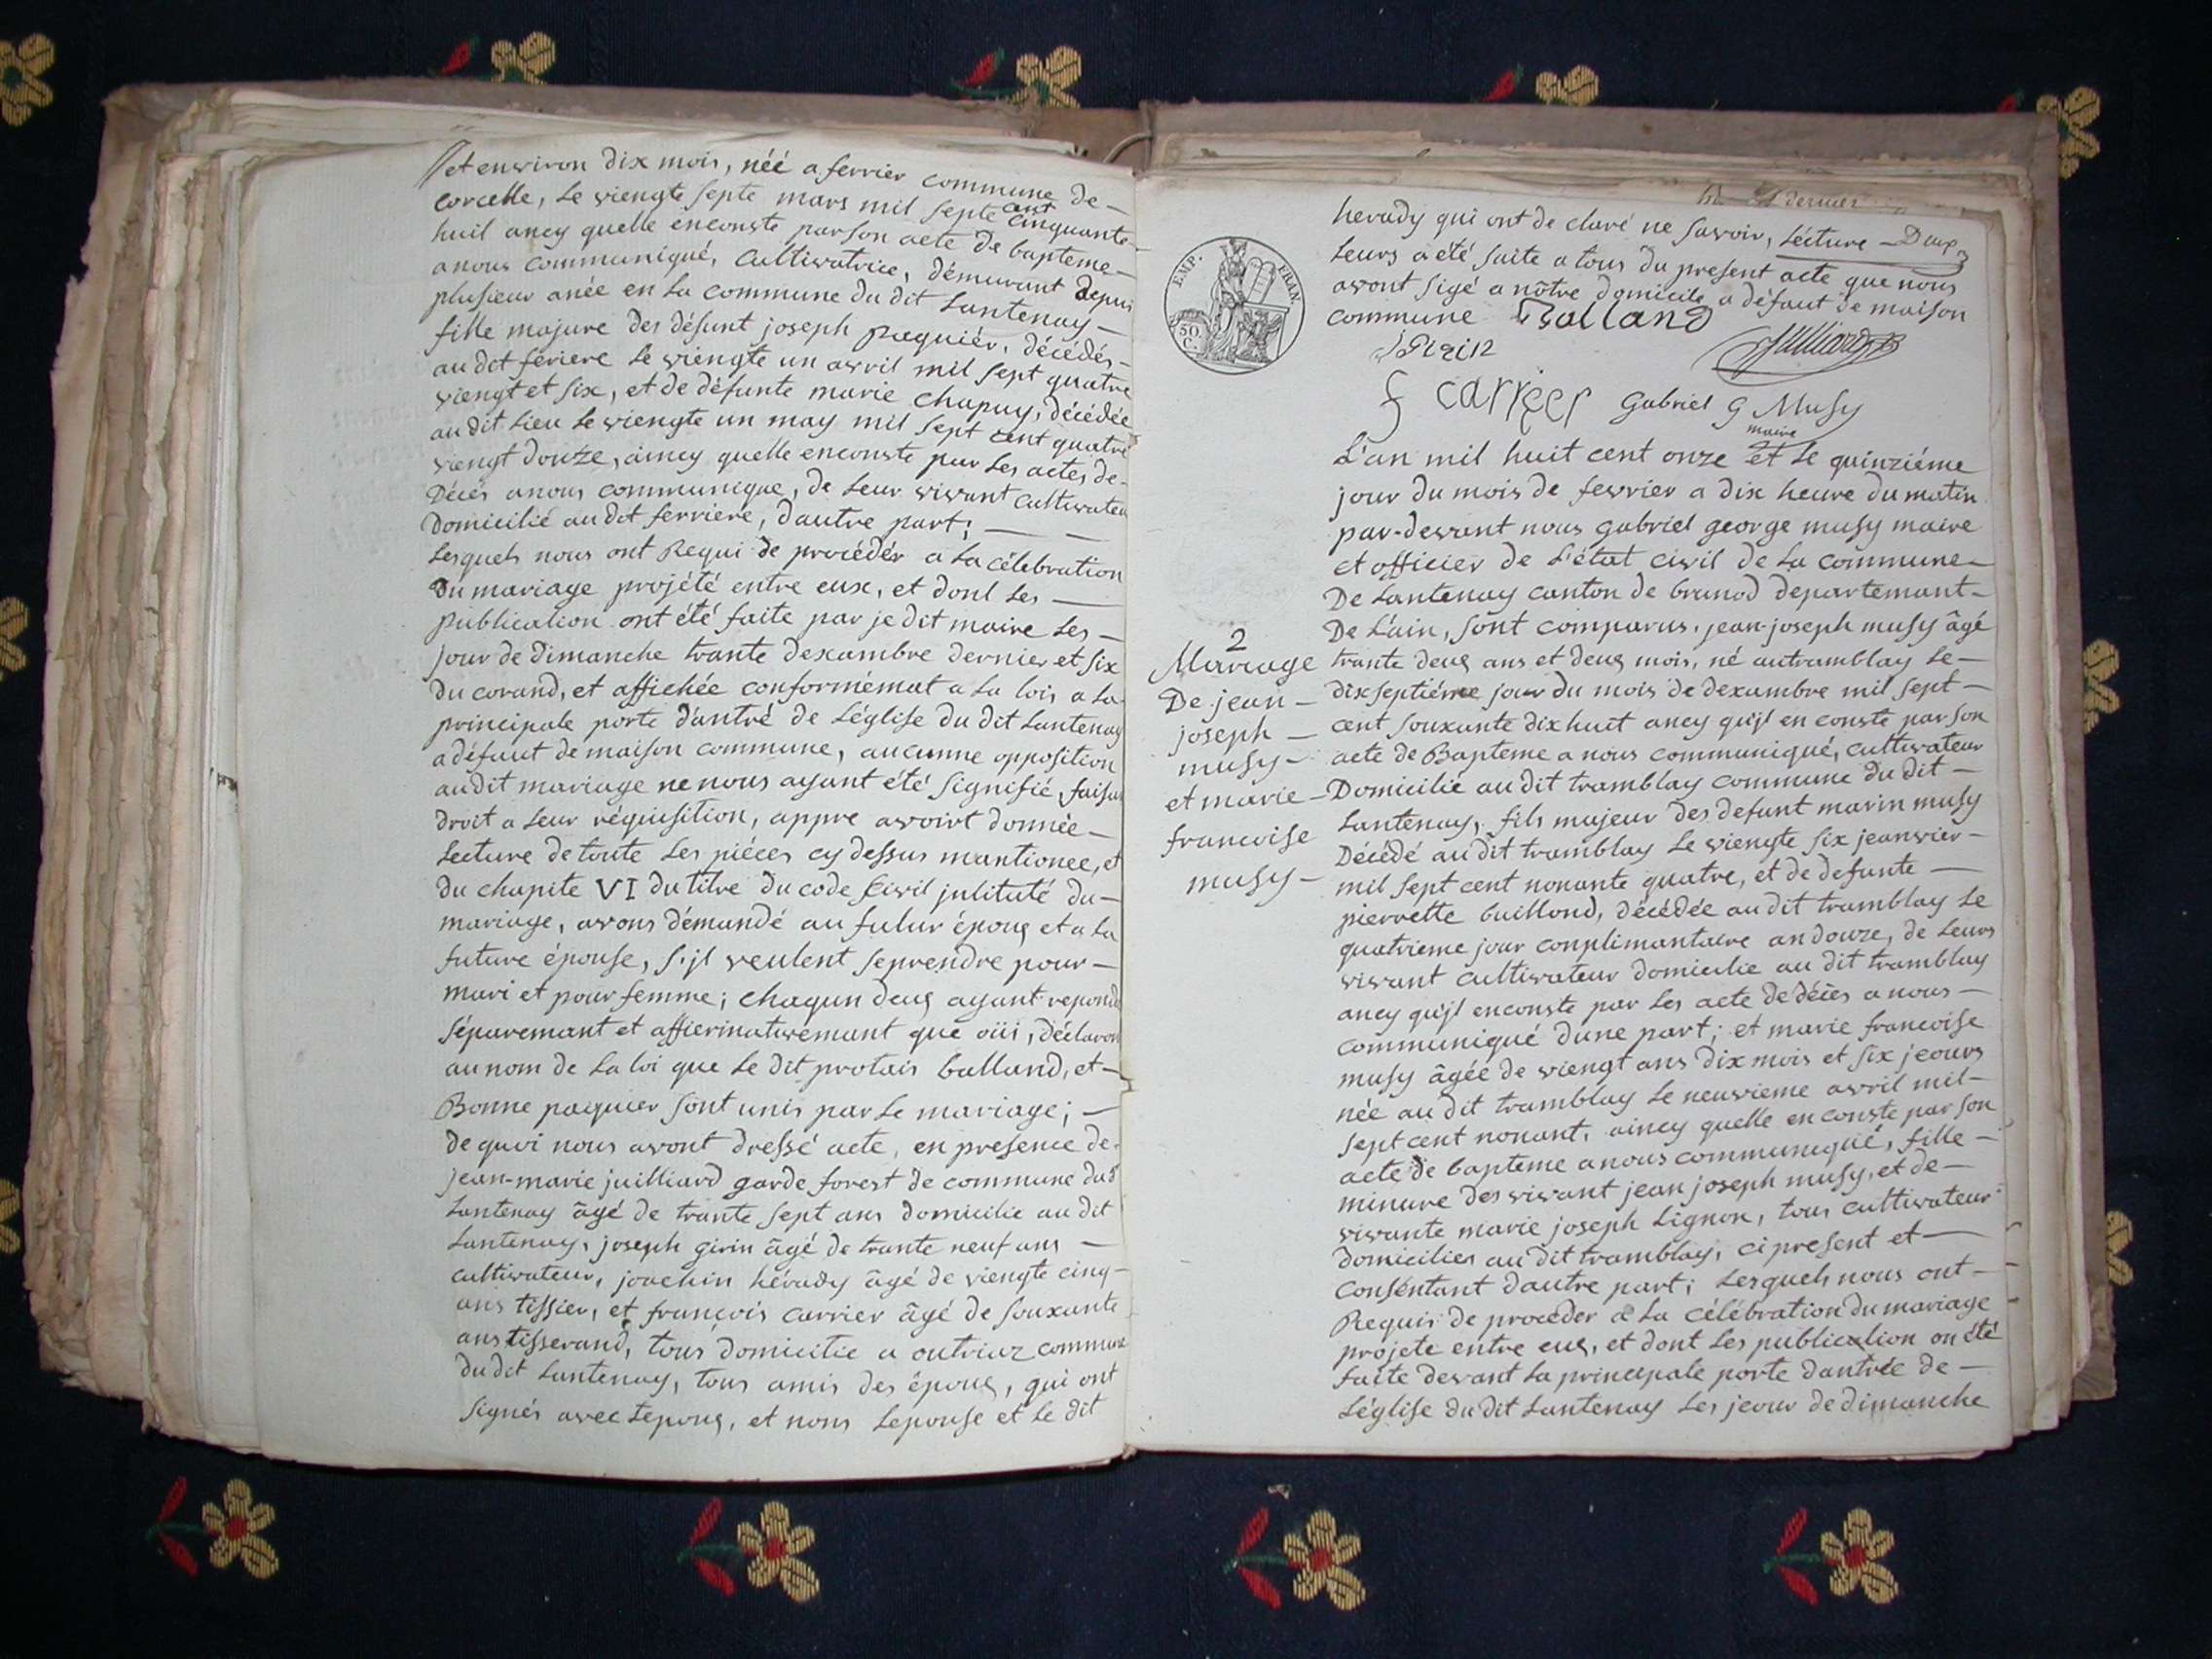 et environ dix mois, néé a ferrier commune de
corcelle, le viengte septe mars mil septe cent cinquante
huil ancy quelle enconste par son acte de bapteme
a nous communiqué, Cultivatrice, démeurant depui
plusieur anée en la commune du dit Lantenay
fille majure des défunt joseph paquiér, décédés
au dit feriere le viengte un avril mil sept quatre
viengt et six, et de défunte marie chapuy, décédée
au dit lieu le viengte un may mil sept cent quatre
viengt douze, aincy quelle enconste par les actes de
Décés a nous communique, de leur vivant cultivateu
Domicilié au dit ferriere, dautre part;
Lesquels nous ont Requi de procédér a la célébration
du mariage projété entre eux, et dont les
publication ont été faite par je dit maire les
jour de dimanche trante dexambre dernier et six
du corand, et affichée conformémat a la lois a la
principale porte d'antré de Léglise du dit Lantenay
a défaut de maison commune, aucunne opposition
au dit mariage ne nous ayant été signifié, faisan
droit a leur réquisition, appre avoirt donnée
Lecture de toute les piéces cy dessus mantionee, et
du chapite VI du titre du code civil jntituté du
mariage, avons démandé au futur époug et a la
future épouse, s'jl veulent seprendre pour
mari et pour femme; chaqun deug ayant repondu
séparemant et affierinativemant que oüi, déclaron
au nom de la loi que le dit protais balland, et
Bonne paquier sont unis par le mariage;
de quoi nous avont dressé acte, en presence de
jean-marie juilliard garde forest de commune dud
Lantenay âgé de trante sept ans domicilie au dit
Lantenay, joseph girin âgé de trante neuf ans
cultivateur, joachin hérady âgé de viengte cinq
ans tissier, et francois carrier âgé de souxante
ans tisserand, tous domicilie a outriaz commune
du dit Lantenay, tous amis des époug, qui ont
signés avec lepoug, et nons lepouse et le dit
dernier
herady qui ont de claré ne savoir, Lécture Dup
Leurs a été faite a tous du present acte que nous
avont sigé a nôtre domicile a défaut de maison
commune Balland
EMP. FRAN.
50 C.
J Girin
Juilliard
f carrier Gabriel G Musy
maire
L'an mil huit cent onze et le quinziéme
jour du mois de fevrier a dix heure du matin
par-devant nous gabriel george musy maire
et officier de L'état civil de la commune
De Lantenay canton de brenod departemant
De L'ain, sont comparus, jean-joseph musy âgé
trante deug ans et deug mois, né autramblay le
dixseptiéme jour du mois de dexambre mil sept
cent souxante dix huit ancy qu'jl en conste par son
acte de Bapteme a nous communiqué, cultivateur
Domicilie au dit tramblay commune du dit
Lantenay, fils majeur des defunt marin musy
Décédé au dit tramblay le viengte six jeanvier
mil sept cent nonante quatre, et de defunte
pierrette buillond, décédée au dit tramblay le
quatrieme jour conplimantaire an douze, de leurs
vivant cultivateur domicilie au dit tramblay
ancy qu'jl enconste par les acte de décés a nous
communiqué dune part; et marie francoise
musy âgée de viengt ans dix mois et six jeours
née au dit tramblay le neuvieme avril mil
sept cent nonant, aincy quelle en conste par son
acte de bapteme a nous communiqué, fille
minure des vivant jean joseph musy, et de
vivante marie joseph Lignon, tous cultivateur
domicilies au dit tramblay, ci present et
conséntant dautre part; Lesquels nous ont
Requis de proceder a la célébration du mariage
projete entre eug, et dont les publication on été
faite devant la principale porte dantrée de
Léglise du dit Lantenay les jeour de dimanche
2
Mariage
De jean
joseph
musy
et marie
francoise
musy